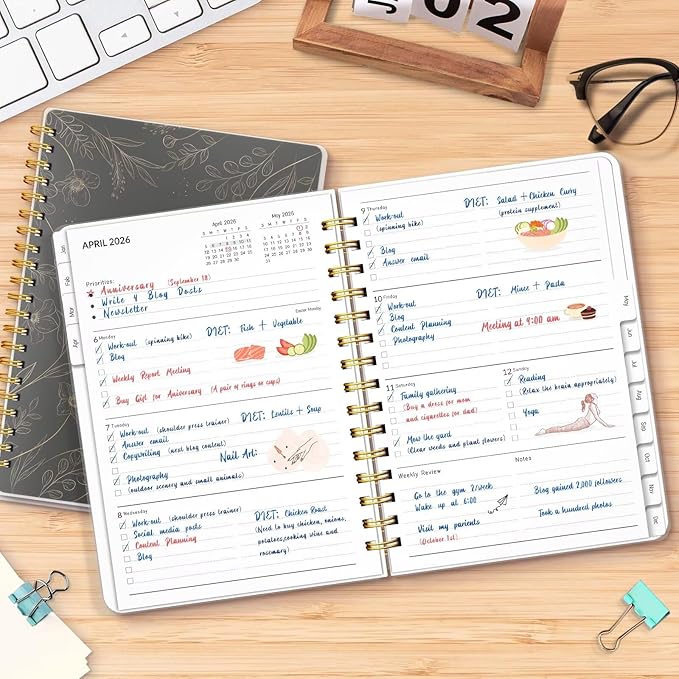 02
APRIL 2026
April 2026
May 2026
S M T W T F S
S M T W T F S
Jan
Feb
Mar
Apr
Priorities:
Anniversary (September 18)
Write 4 Blog Posts
Newsletter
6 Monday
Easter Monday
Work-out (spinning bike) DIET: Fish + Vegetable
Blog
Weekly Report Meeting
Buy Gift for Anniversary (A pair of rings or cups)
7 Tuesday
Work-out (shoulder press trainer) DIET: Lentils + Soup
Answer email
Copywriting (next blog content) Nail Art:
Photography
(outdoor scenery and small animals)
8 Wednesday
Work-out (shoulder press trainer) DIET: Chicken Roast
Social media posts (Need to buy chicken, onions,
Content Planning potatoes,cooking wine and
Blog rosemary)
9 Thursday
Work-out DIET: Salad + Chicken Curry
(spinning bike) (protein supplement)
Blog
Answer email
10 Friday
Work-out DIET: Mince + Pasta
Blog
Content Planning Meeting at 9:00 am
Photography
11 Saturday
Family gathering
(Buy a dress for mom
and cigarettes for dad)
Mow the yard
(Clear weeds and plant flowers)
12 Sunday
Reading
(Relax the brain appropriately)
Yoga
Weekly Review
Go to the gym 2/week
Wake up at 6:00
Visit my parients
(October 1st)
Notes
Blog gained 2,000 followers
Took a hundred photos
May
Jun
Jul
Aug
Sep
Oct
Nov
Dec